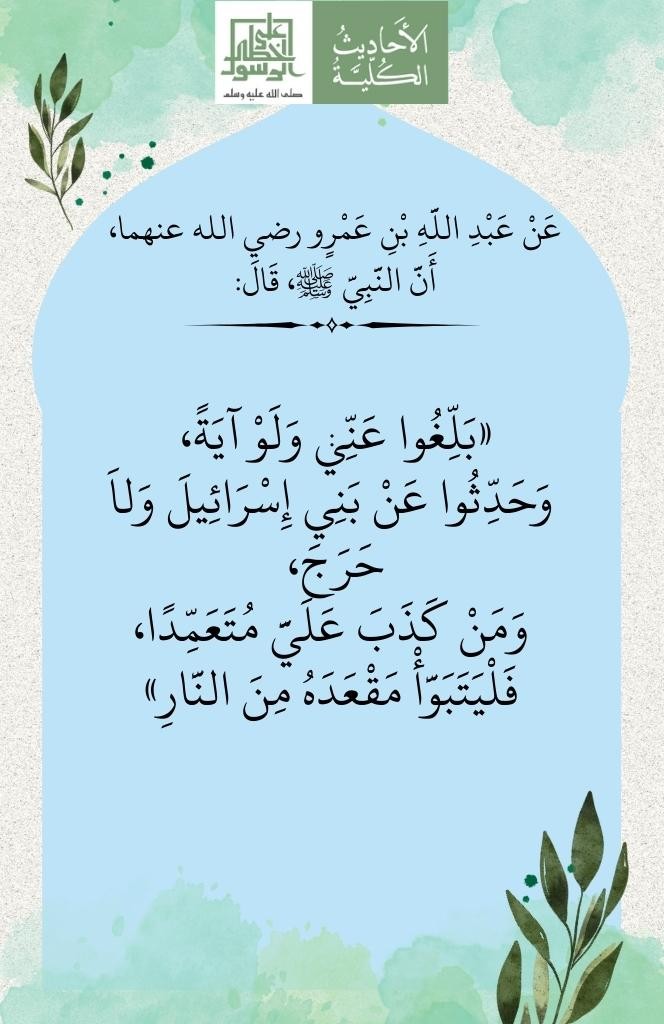 الأَحَادِيثُ
الكُلِّيَّةُ
على
خطى
الرسول
صلى الله عليه وسلم
عَنْ عَبْدِ اللَّهِ بْنِ عَمْرٍو رضي الله عنهما،
أَنَّ النَّبِيّ ﷺ، قَالَ:
«بَلِّغُوا عَنِّي وَلَوْ آيَةً،
وَحَدِّثُوا عَنْ بَنِي إِسْرَائِيلَ وَلاَ
حَرَجَ،
وَمَنْ كَذَبَ عَلَيّ مُتَعَمِّدًا،
فَلْيَتَبَوَّأْ مَقْعَدَهُ مِنَ النَّارِ»